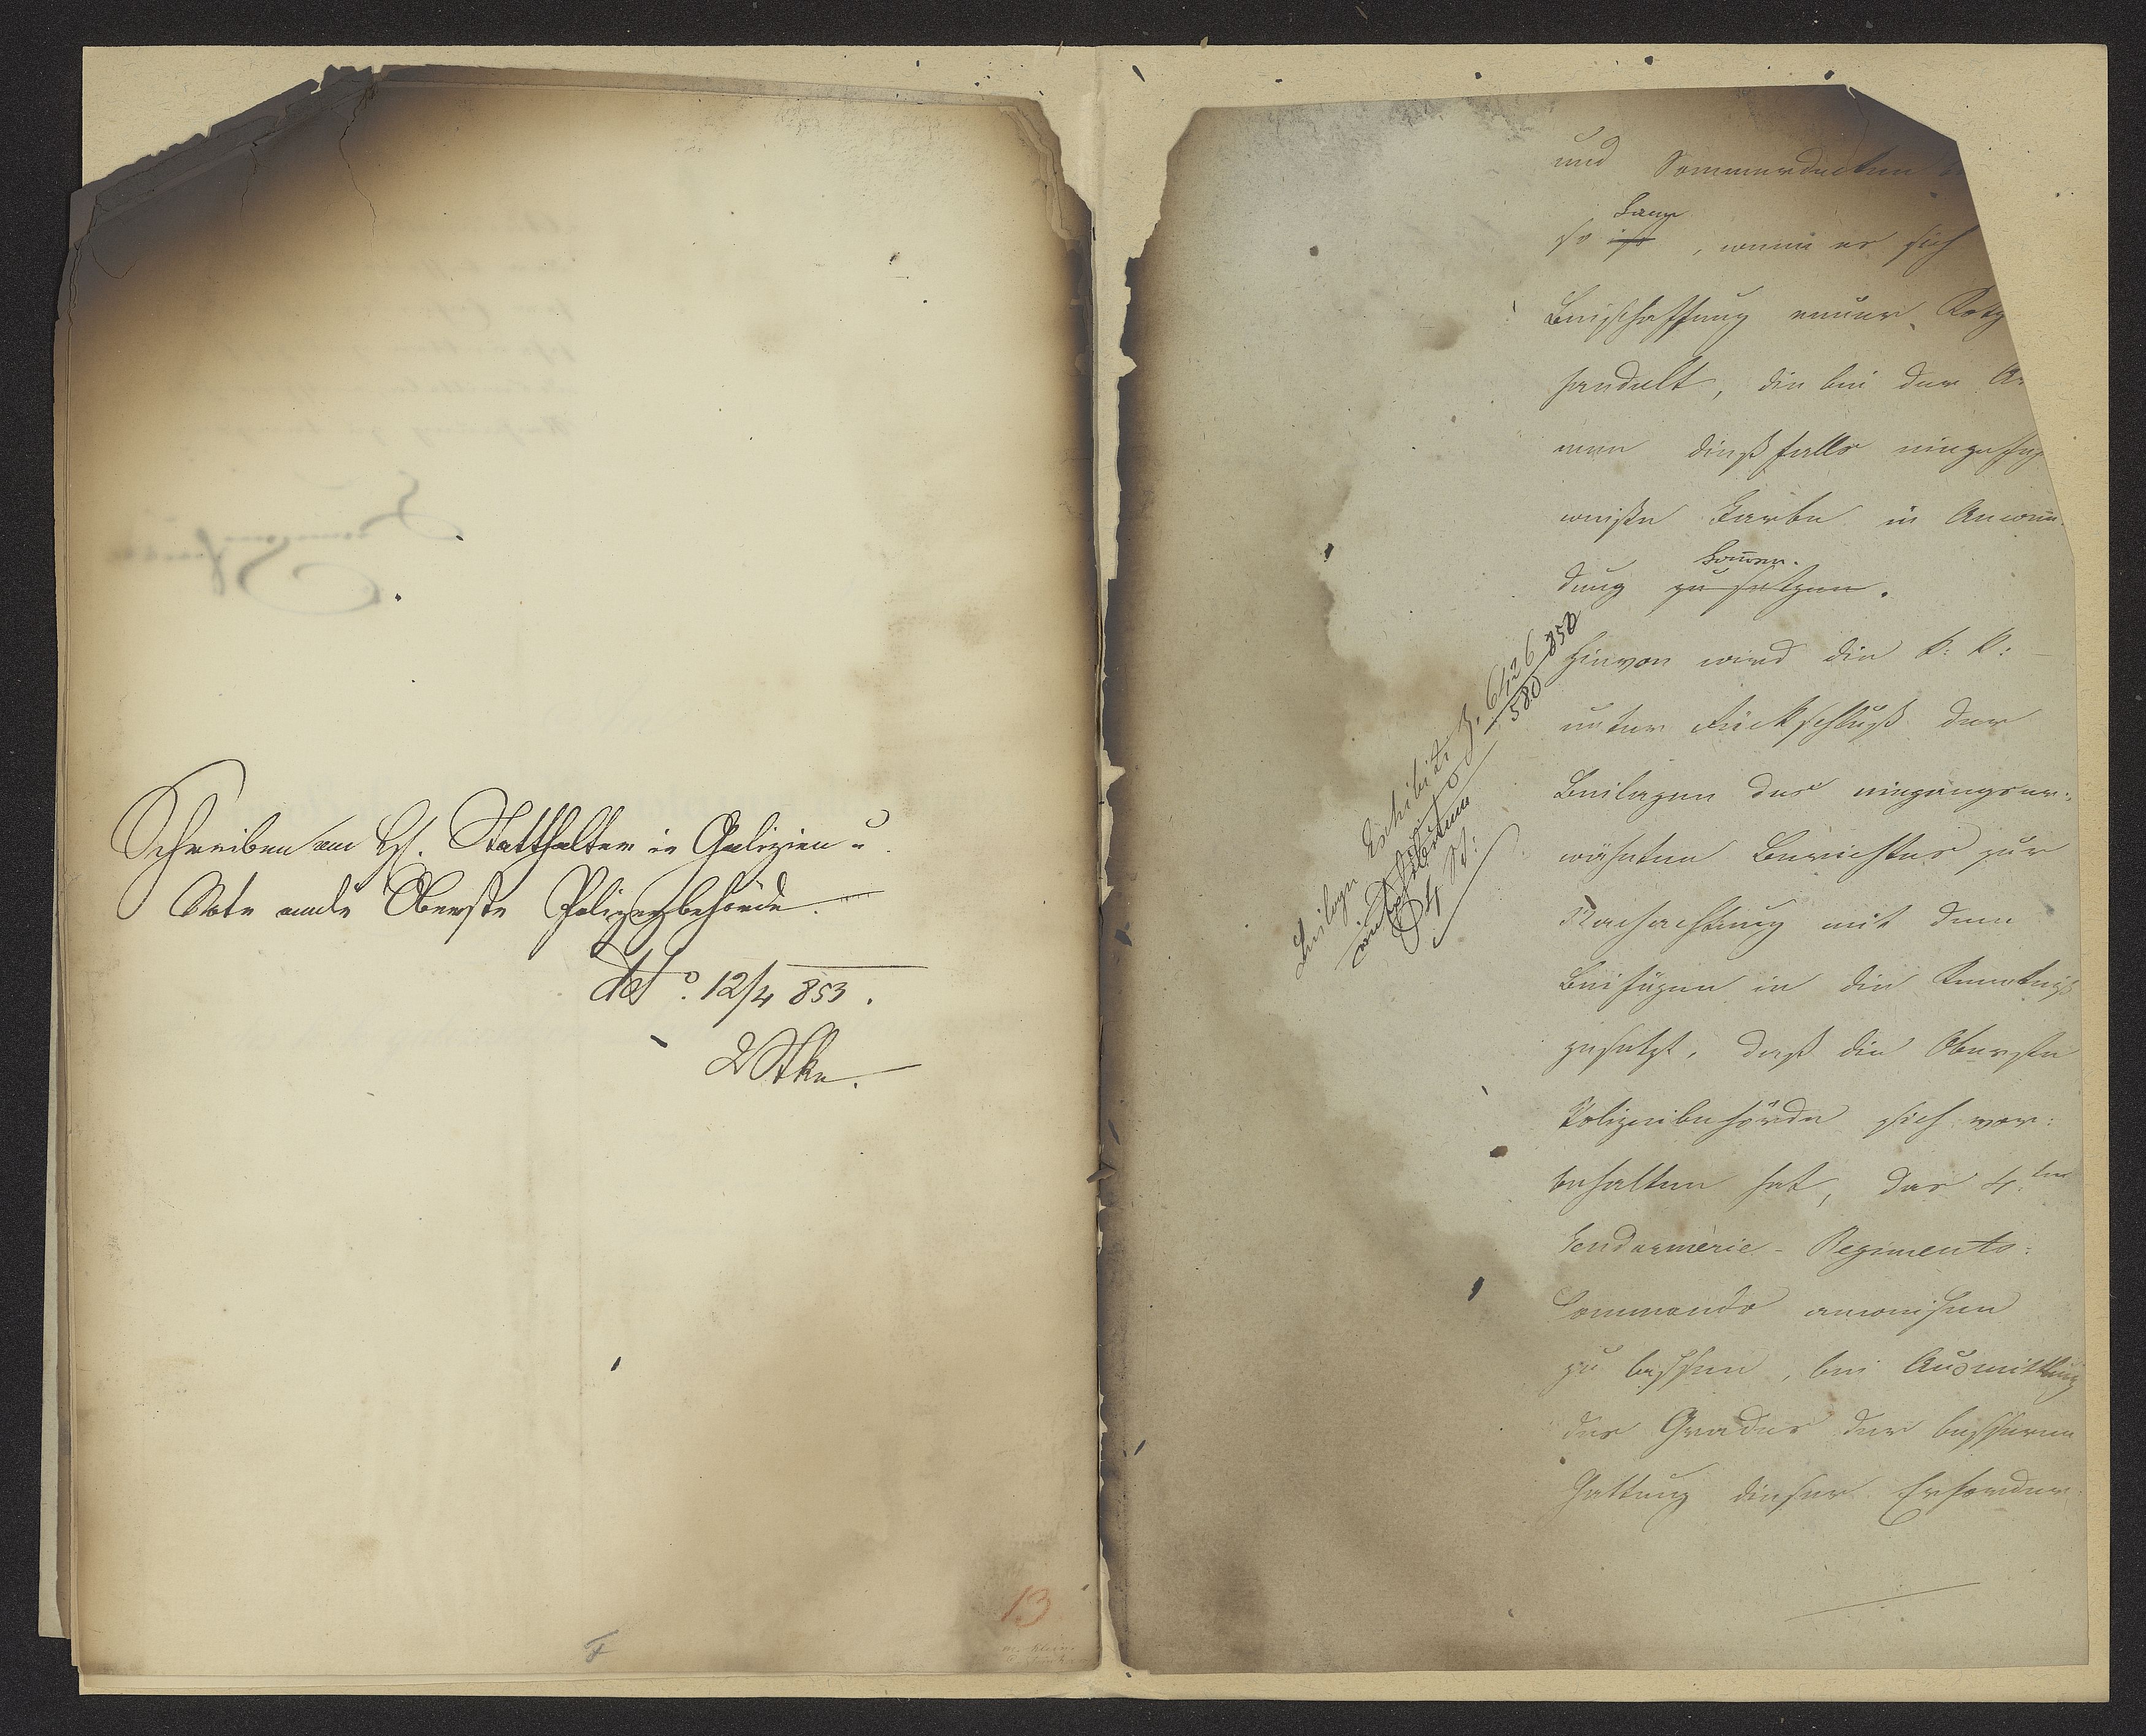 Schreiben an H. Statthalter in Galizien u
Note an die Oberste Polizeybehörde.
ddo. 12/4 853.
2 Stke.
13
und Sommerdecken
kann
so ist, wenn es sich
Beischaffung neuer
handelt, die bei der
men dießfalls
weiße Farbe in Anwen-
kommen.
dung zu setzen.
Hievon wird die k: k:
unter Rückschluß der
Beilagen des eingangser-
wähnten Berichtes zur
Nachachtung mit dem
Beifügen in die Kenntniß
gesetzt, daß die Oberste
Polizeibehörde sich vor:
behalten hat, das 4te
Gendarmerie-Regiments:
Commando anweisen
zu lassen, bei Ausmittlung
des Grades der besseren
Gattung dieser Erforder
Beilagen Exhibits Z. 6426/580 853